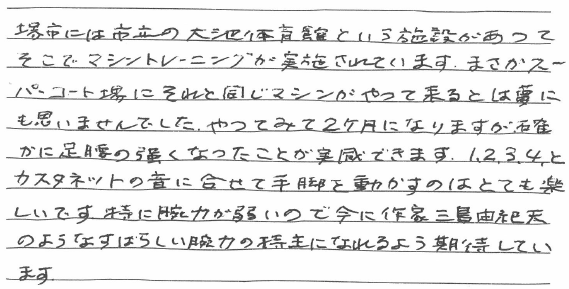 堺市には市立の大池体育館という施設があって
そこでマシントレーニングが実施されています.まさかスー
パーコート堺にそれと同じマシンがやって来るとは夢に
も思いませんでした.やってみて2ケ月になりますが確
かに足腰の強くなったことが実感できます.1,2,3,4,と
カスタネットの音に合せて手脚を動かすのはとても楽
しいです.特に腕力が弱いので今に作家三島由紀夫
のようなすばらしい腕力の持主になれるよう期待してい
ます.